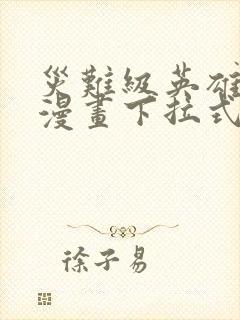 災難級英雄
漫畫下拉式
徐子易